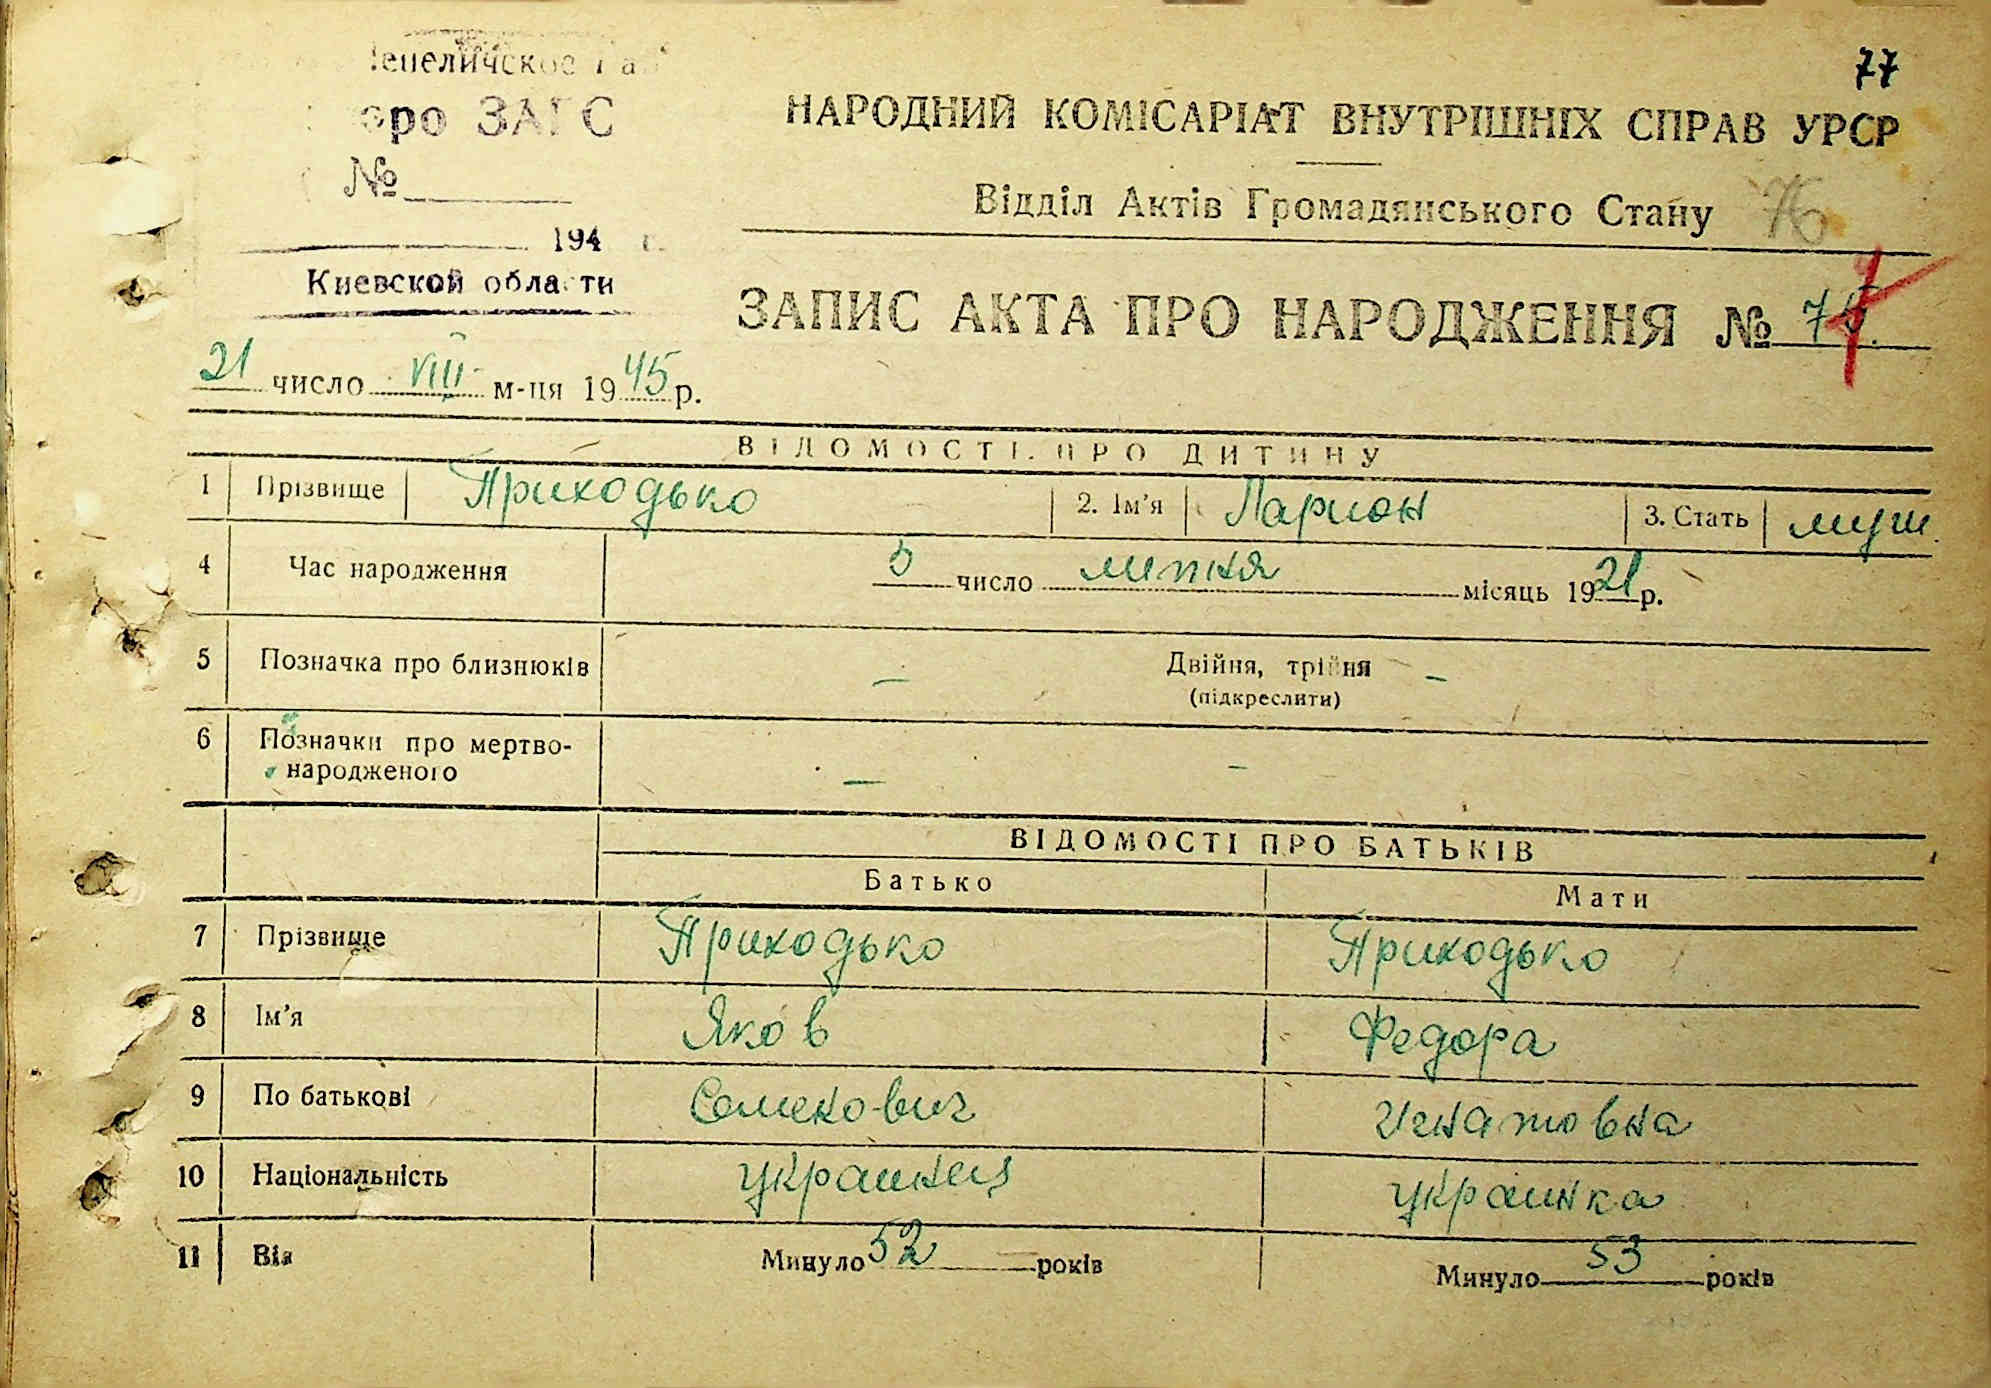 77
НАРОДНИЙ КОМІСАРІАТ ВНУТРІШНІХ СПРАВ УРСР
ЗАГС
№
194
Киевской области
Відділ Актів Громадянського Стану 76
ЗАПИС АКТА ПРО НАРОДЖЕННЯ №
21 число VIII м-ця 1945 р.
ВІДОМОСТІ ПРО ДИТИНУ
1 Прізвище Приходько 2. Ім'я Ларион 3. Стать муж.
4 Час народження 5 число липня місяць 1921 р.
5 Позначка про близнюків — Двійня, трійня —
(підкреслити)
6 Позначки про мертво-
народженого — —
ВІДОМОСТІ ПРО БАТЬКІВ
Батько Мати
7 Прізвище Приходько Приходько
8 Ім'я Яков Федора
9 По батькові Семенович Игнатовна
10 Національність украинец украинка
11 Вік Минуло 52 років Минуло 53 років